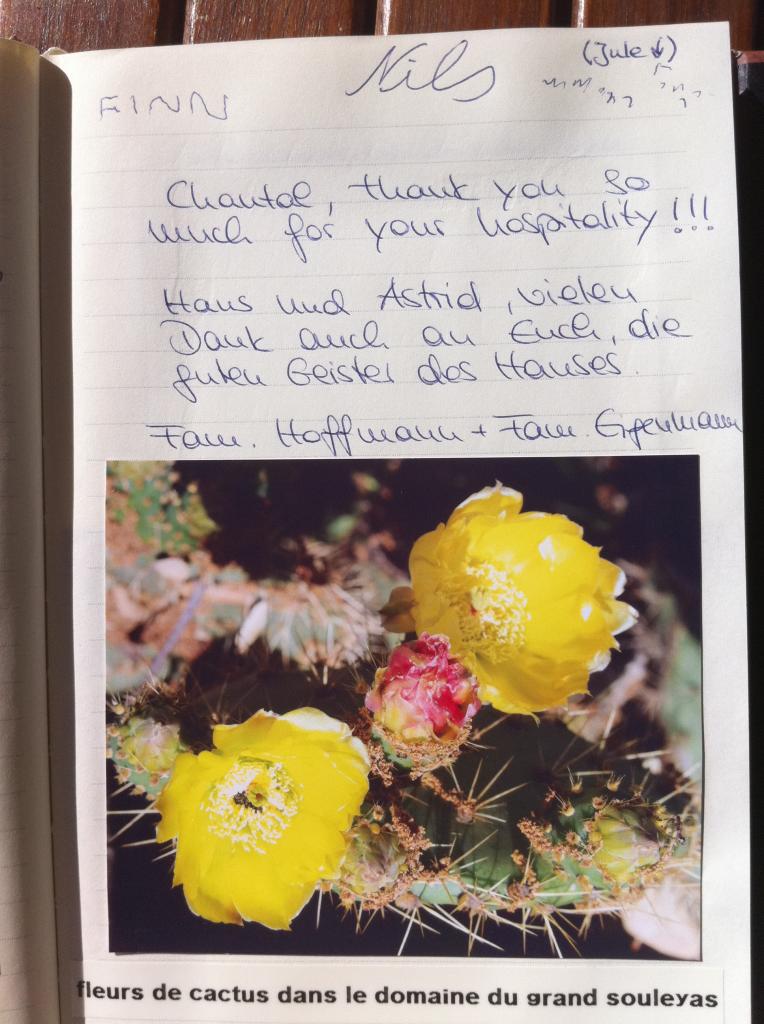 FINN
Nils
(Jule ↓)
Chantal, thank you so
much for your hospitality!!!
Hans und Astrid, vielen
Dank auch an Euch, die
guten Geister des Hauses.
Fam. Hoffmann + Fam. Eigenmann
fleurs de cactus dans le domaine du grand souleyas